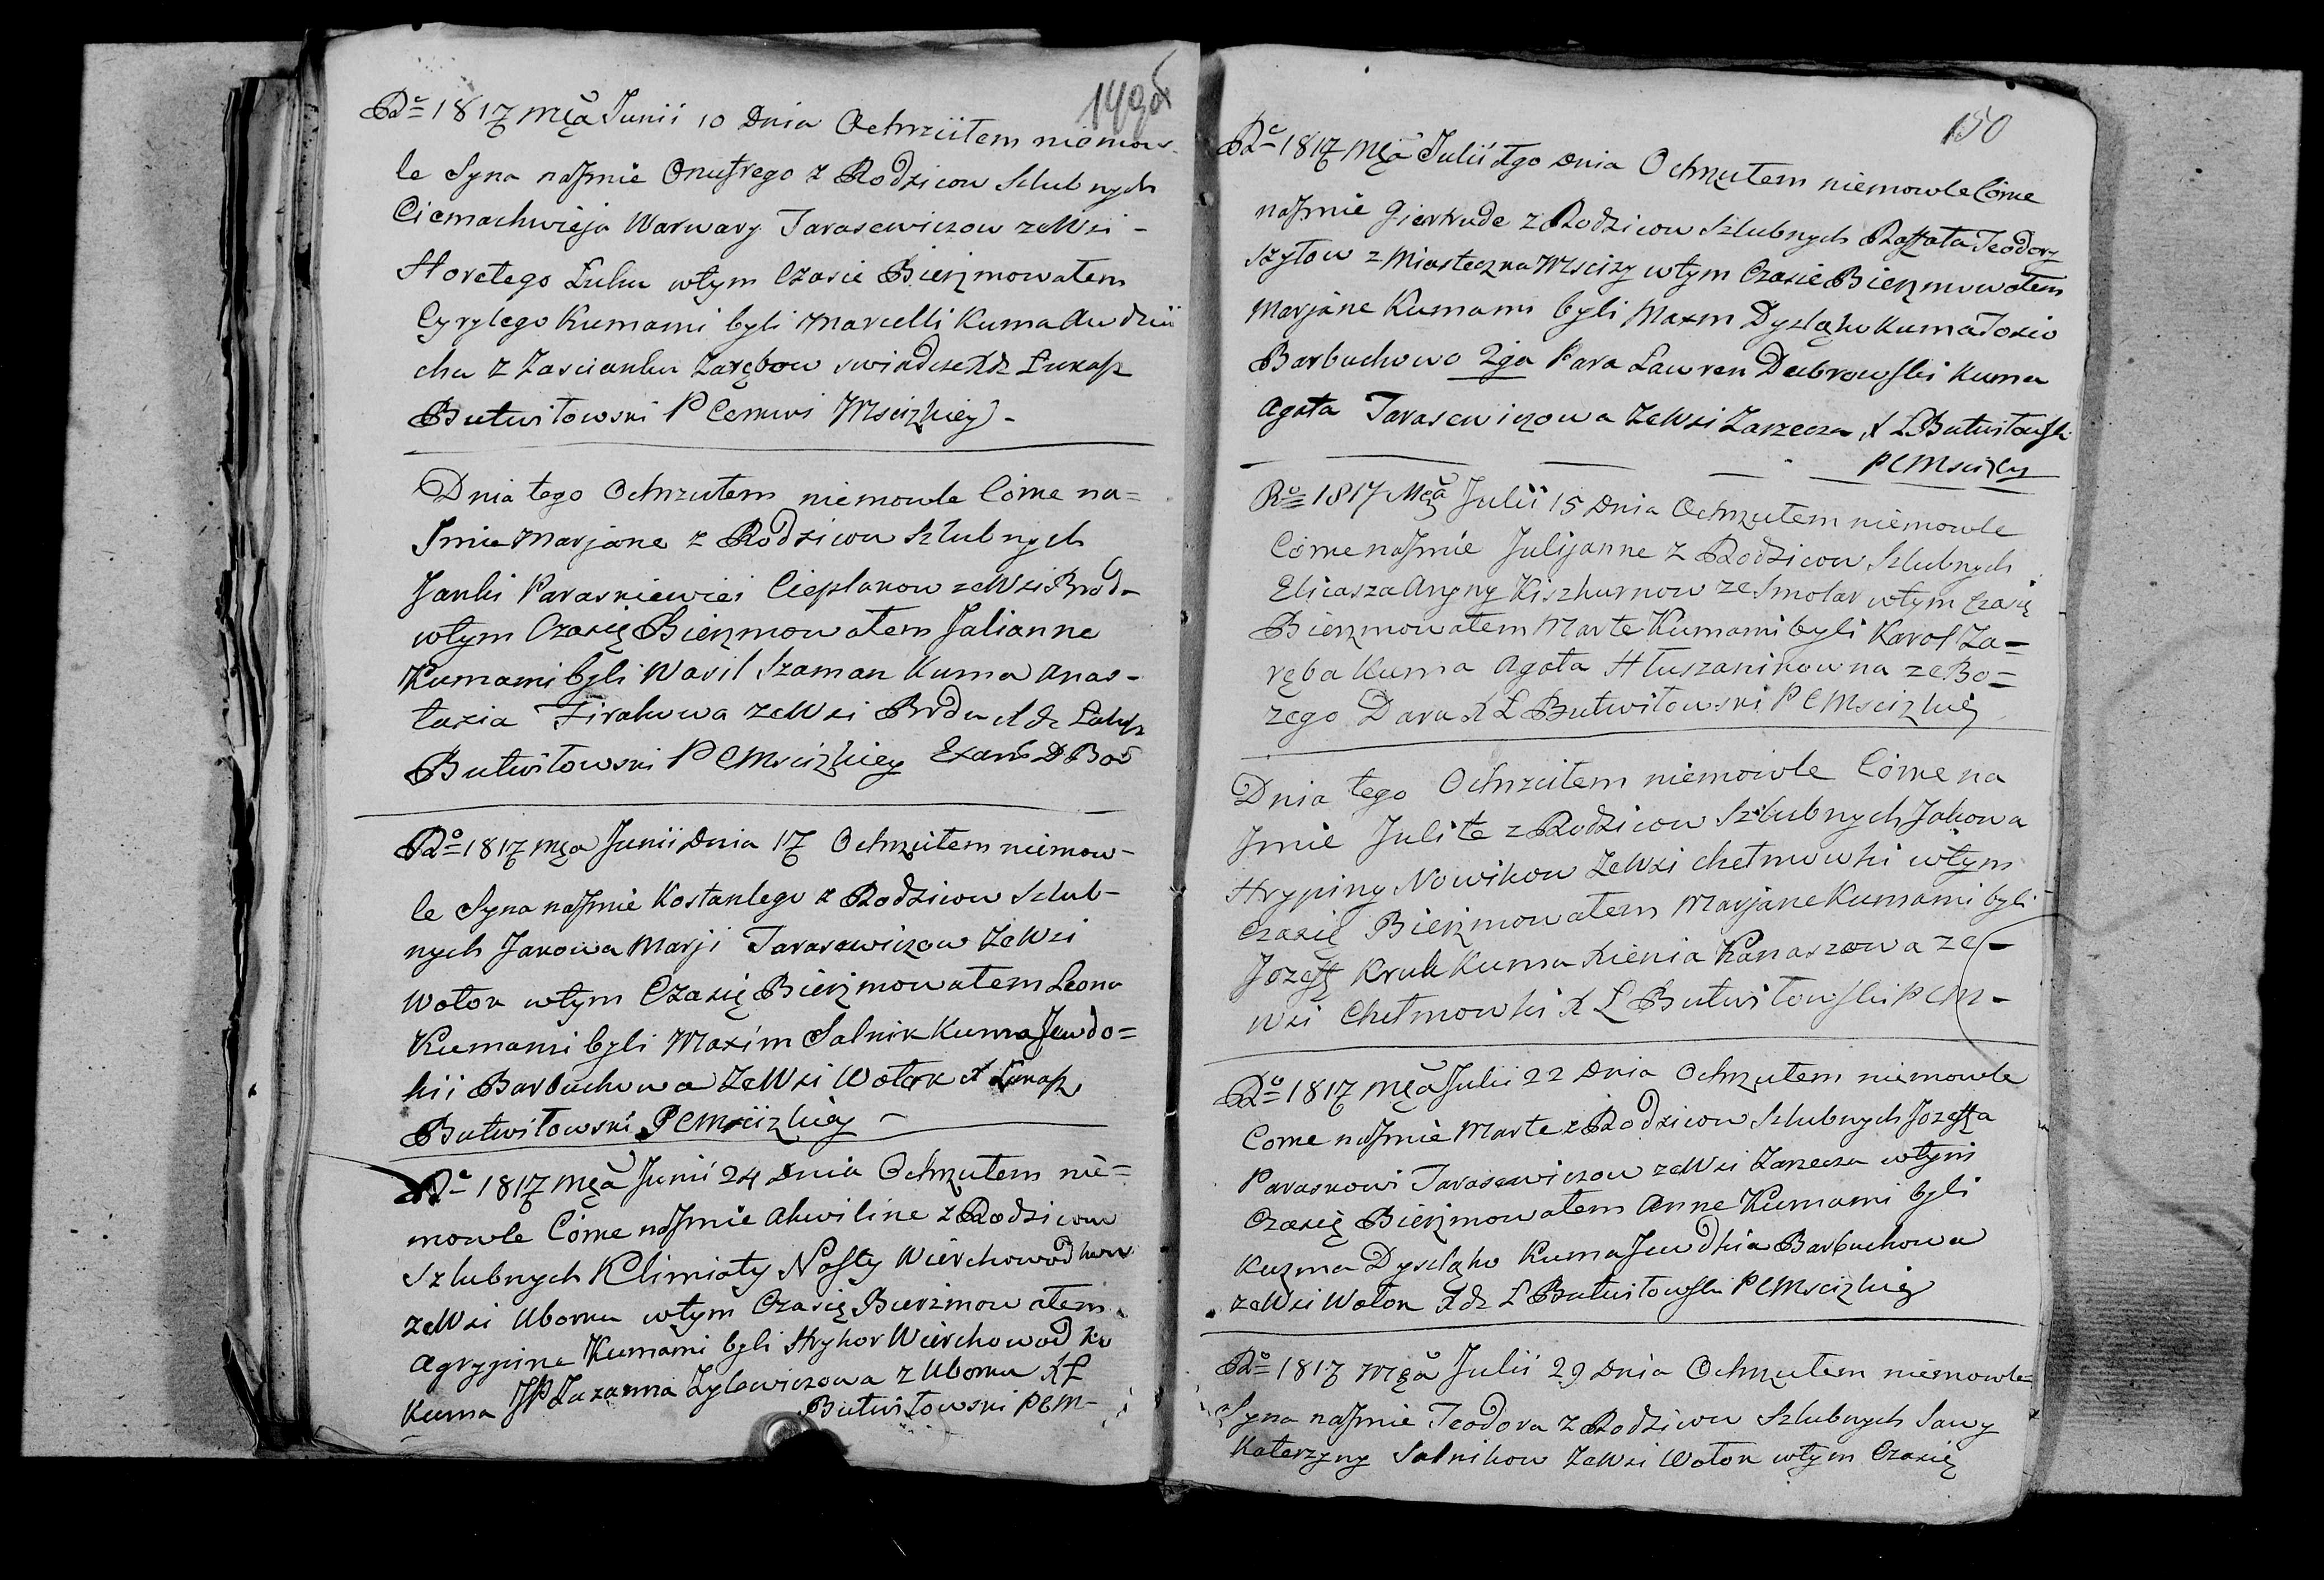 149об
Rº 1817 Mca Junii 10 Dnia Ochrzciłem niemow-
le Syna na Jmie Onufrego z Rodzicow Szlubnych
Ciemachwieja Warwary Tarasewiczow ze Wsi -
Horełego Luhu w tym Czasie Bierzmowałem
Cyrylego Kumami byli Marcelli Kuma Awdzii
cha z Zascianku Zarębow swiadcze Xdz Łukasz
Butwiłowski P Cerkwi Mscizkiey -
Dnia tego Ochrzciłem niemowle Córke na=
Jmie Marjane z Rodzicow Szlubnych
Janki Paraskiewiei Cieplakow ze Wsi Brod-
w tym Czasię Bierzmowałem Julianne
Kumami byli Wasil Szaman Kuma Anas-
tazia Firahowa ze Wsi Brodu Xdz Łukasz
Butwiłowski P C Mscizkiey
Rº 1817 Mca Junii Dnia 17 Ochrzciłem niemow-
le Syna na Jmie Kostantego z Rodzicow Szlub-
nych Jakowa Marji Tarasewiczow ze Wsi
Wołok w tym Czasię Bierzmowałem Leona
Kumami byli Maxim Salnik Kuma Jewdo=
kii Barbuchowa ze Wsi Wołok X Łukasz
Butwiłowski P C Mscizkiey
Rº 1817 Mca Junii 24 Dnia Ochrzciłem nie=
mowle Córke na Jmie Akwiline z Rodzicow
Szlubnych Klimiaty Nasty Wierchowodkow
ze Wsi Uborku w tym Czasię Bierzmowałem
Agrypine Kumami byli Hryhor Wierchowodko
Kuma JP Zuzanna Zylewiczowa z Uborku X Ł
Butwiłowski P C M-
150
Rº 1817 Mca Julii 1go Dnia Ochrzciłem niemowle Córke
na Jmie Giertrude z Rodzicow Szlubnych Raffała Teodory
Szyłow z Miasteczka Mscizy w tym Czasie Bierzmowałem
Marjane Kumami byli Maxm Dyszlęko Kuma Tozio
Barbuchowo 2ga Para Lawren Dubrowski Kuma
Agata Tarasewiczowa ze Wsi Zarzecza X Ł Butwiłowski
P C Mscizkiey
Rº 1817 Mca Julii 15 Dnia Ochrzciłem niemowle
Córke na Jmie Julijanne z Rodzicow Szlubnych
Elieasza Anyny Kiszkurnow ze Smolar w tym Czasię
Bierzmowałem Marte Kumami byli Karol Za=
ręba Kuma Agata Hłuszanikowna ze Bo=
zego Dara X Ł Butwiłowski P C Mscizkiey
Dnia tego Ochrzciłem niemowle Córke na
Jmie Julite z Rodzicow Szlubnych Jakowa
Hrypiny Nowikow ze Wsi Chełmowki w tym
Czasię Bierzmowałem Marjane Kumami byli
Jozeff Kruk Kuma Xienia Kanaszowa ze -
Wsi Chełmowki X Ł Butwiłowski P C M-
Rº 1817 Mca Julii 22 Dnia Ochrzciłem niemowle
Corke na Jmie Marte z Rodzicow Szlubnych Jozeffa
Paraskowi Tarasewiczow ze Wsi Zarzecza w tym
Czasię Bierzmowałem Anne Kumami byli
Kuzma Dyszlęko Kuma Jewdkia Barbuchowa
ze Wsi Wołok Xdz Ł Butwiłowski P C Mscizkiey
Rº 1817 Mca Julii 29 Dnia Ochrzciłem niemowle=
Syna na Jmie Teodora z Rodzicow Szlubnych Sawy
Katerzyny Salnikow ze Wsi Wołok w tym Czasię